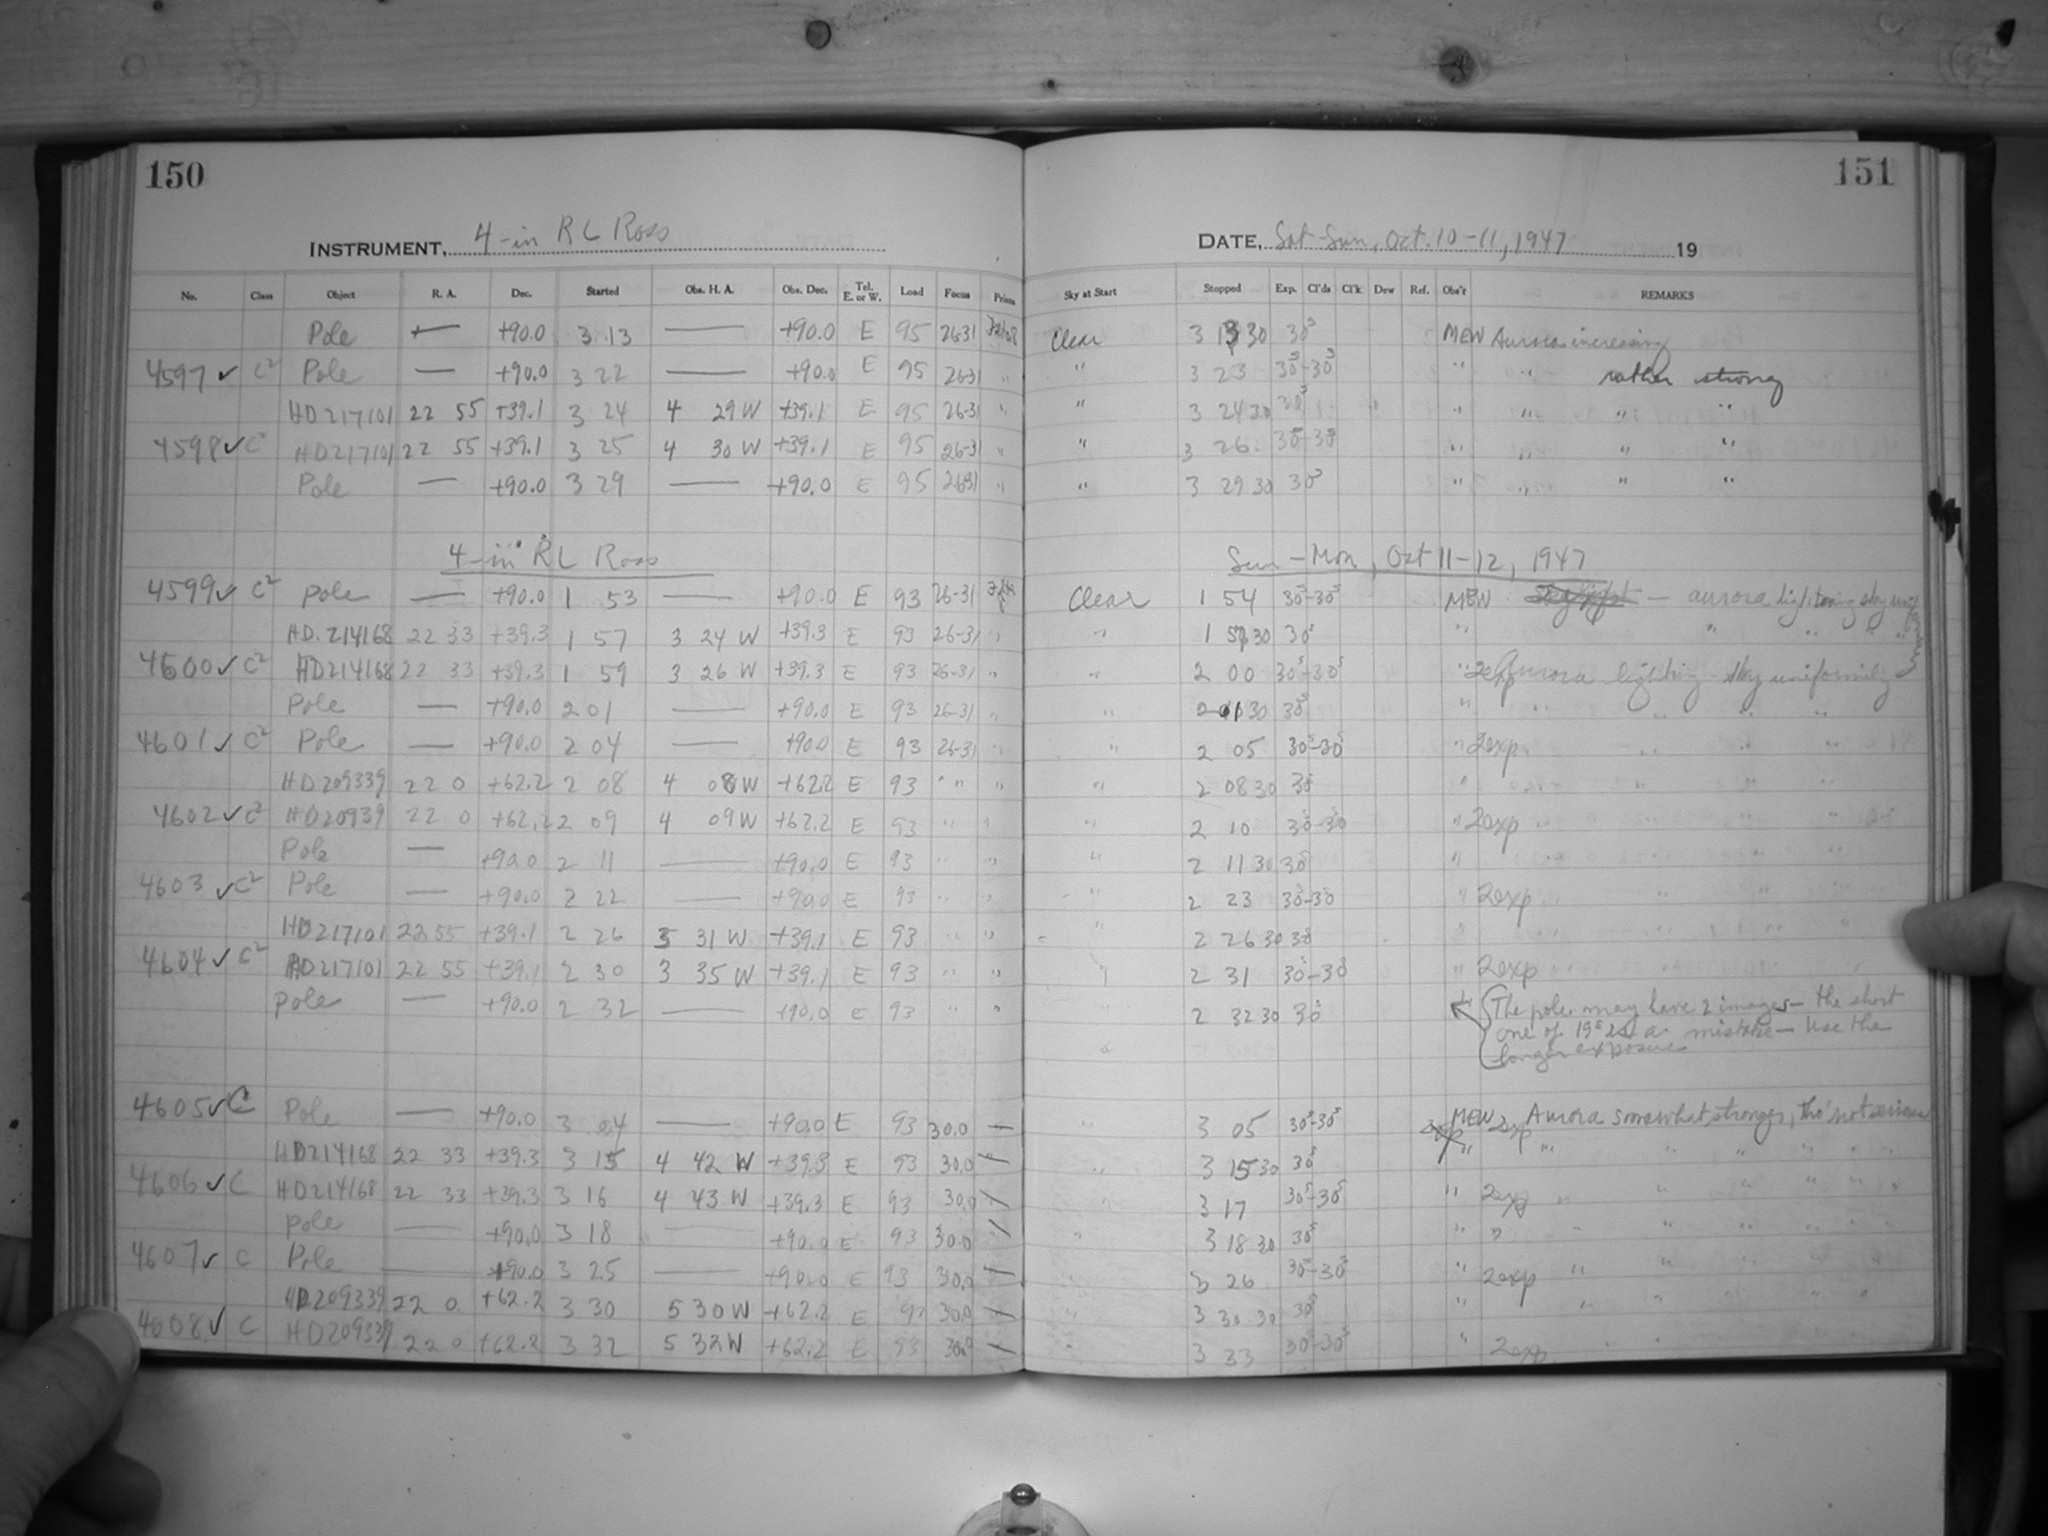 150
151
INSTRUMENT, 4-in RL Ross
DATE, Sat-Sun, Oct. 10-11, 1947 19
No. Class Object R. A. Dec. Started Obs. H. A. Obs. Dec. Tel. E. or W. Load Focus Prisms Sky at Start Stopped Exp. Cl'ds Cl'k Dew Ref. Obs'r REMARKS
Pole — +90.0 3 13 — +90.0 E 95 26-31 Clear 3 13 30 30s MEW Aurora increasing
4597 ✓ C2 Pole — +90.0 3 22 — +90.0 E 95 26-31 " " 3 23 30s-30s " " rather strong
HD217101 22 55 +39.1 3 24 4 29 W +39.1 E 95 26-31 " " 3 24 30 30s " " " "
4598 ✓ C2 HD217101 22 55 +39.1 3 25 4 30 W +39.1 E 95 26-31 " " 3 26 30s-30s " " " "
Pole — +90.0 3 29 — +90.0 E 95 26-31 " " 3 29 30 30s " " " "
4-in RL Ross Sun-Mon, Oct 11-12, 1947
4599 ✓ C2 Pole — +90.0 1 53 — +90.0 E 93 26-31 Clear 1 54 30s-30s MEW — aurora lightening sky
HD.214168 22 33 +39.3 1 57 3 24 W +39.3 E 93 26-31 " " 1 57 30 30s " " " "
4600 ✓ C2 HD214168 22 33 +39.3 1 59 3 26 W +39.3 E 93 26-31 " " 2 00 30s-30s " 2exp Aurora lighting sky uniformily
Pole — +90.0 2 01 — +90.0 E 93 26-31 " " 2 01 30 30s " " " "
4601 ✓ C2 Pole — +90.0 2 04 — +90.0 E 93 26-31 " " 2 05 30s-30s " 2exp " " "
HD209339 22 0 +62.2 2 08 4 08 W +62.2 E 93 " " " 2 08 30 30s " " " "
4602 ✓ C2 HD20939 22 0 +62.2 2 09 4 09 W +62.2 E 93 " " " 2 10 30s-30s " 2exp " " "
Pole — +90.0 2 11 — +90.0 E 93 " " " 2 11 30 30s " " " "
4603 ✓ C2 Pole — +90.0 2 22 — +90.0 E 93 " " " 2 23 30s-30s " 2exp " " "
HD217101 22 55 +39.1 2 26 3 31 W +39.1 E 93 " " " 2 26 30 30s " " " "
4604 ✓ C2 HD217101 22 55 +39.1 2 30 3 35 W +39.1 E 93 " " " 2 31 30s-30s " 2exp " " "
Pole — +90.0 2 32 — +90.0 E 93 " " " 2 32 30 30s The pole may have 2 images — the short
one of 19s is a mistake — use the
longer exposure
4605 ✓ C Pole — +90.0 3 04 — +90.0 E 93 30.0 — " 3 05 30s-30s MEW 2exp Aurora somewhat stronger, tho' not serious
HD214168 22 33 +39.3 3 15 4 42 W +39.3 E 93 30.0 — " 3 15 30 30s " " " "
4606 ✓ C HD214168 22 33 +39.3 3 16 4 43 W +39.3 E 93 30.0 — " 3 17 30s-30s " 2exp " " "
Pole — +90.0 3 18 — +90.0 E 93 30.0 — " 3 18 30 30s " " " "
4607 ✓ C Pole — +90.0 3 25 — +90.0 E 93 30.0 — " 3 26 30s-30s " 2exp " " "
HD209339 22 0 +62.2 3 30 5 30 W +62.2 E 93 30.0 — " 3 30 30 30s " " " "
4608 ✓ C HD209339 22 0 +62.2 3 32 5 32 W +62.2 E 93 30.0 — " 3 33 30s-30s " 2exp